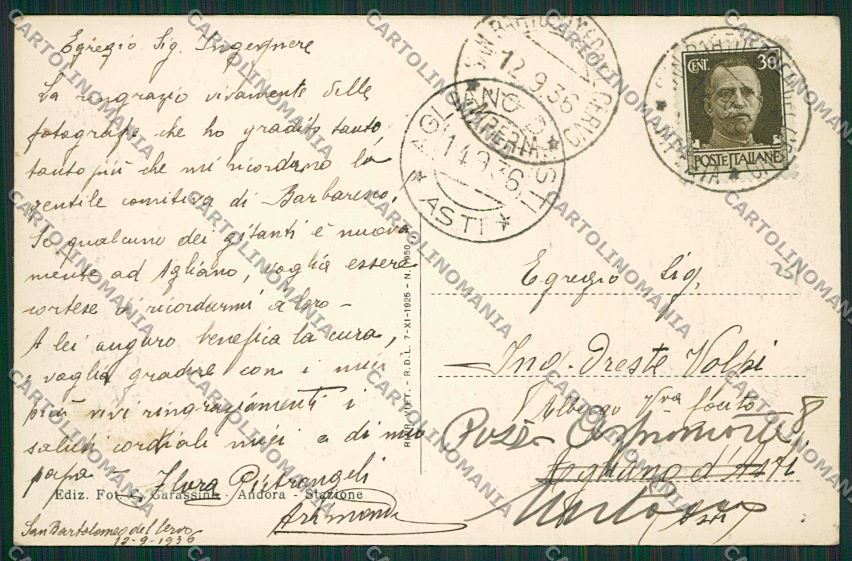 Egregio Sig. Ingegnere
La ringrazio vivamente delle
fotografie che ho gradito tanto,
tanto più che mi ricordano la
gentile comitiva di Barbaresco.
Se qualcuno dei gitanti è nuova
mente ad Agliano, voglia essere
cortese di ricordarmi a loro –
A lei auguro benefica la cura,
e voglia gradire con i miei
più vivi ringraziamenti i
saluti cordiali miei e di mio
papà –
Flora Pietrangeli
Ediz. Fot. C. Garassini - Andora - Stazione
San Bartolomeo del Cervo
12-9-1936
RIPR. VIET. - R.D.L. 7-XI-1925 - N.
SAN BARTOLOMEO CERVO
12.9.36
IMPERIA
AGLIANO ASTI
14.9.36
ASTI
CENT. 30
POSTE ITALIANE
25
Egregio Sig.
Ing. Oreste Volpi
Albergo
8
Agliano d'Asti
CARTOLINOMANIA